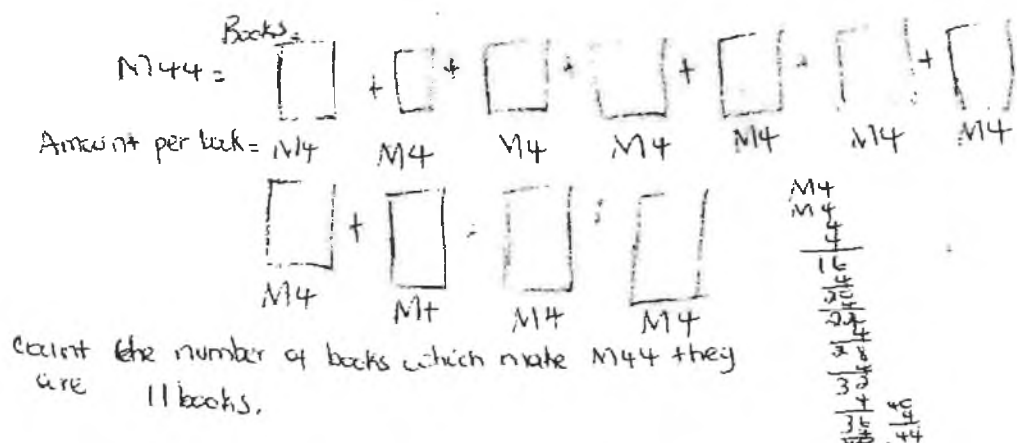 Books.
M44 = + + + + + +
Amount per book = M4 M4 M4 M4 M4 M4 M4
+
M4 M4 M4 M4
M4
M4
44
count the number of books which make M44 they
are 11 books.